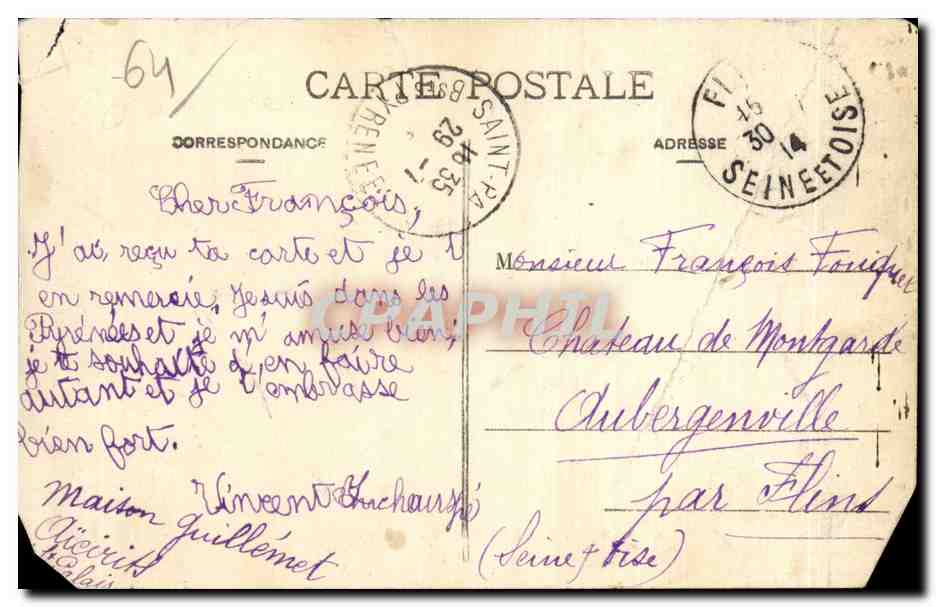 64
CARTE POSTALE
CORRESPONDANCE
Cher François,
J'ai reçu ta carte et je t
en remercie, Je suis dans les
Pyrénées et je m'amuse bien;
je te souhaite d'en faire
autant et je t'embrasse
bien fort.
Vincent
Maison Guillémet
Aïcirits
St Palais
SAINT-PA
BSES PYRENEES
16 35
29 -7
ADRESSE
SEINE ET OISE
15
30
14
Monsieur François Fouquet
Chateau de Montgardé
Aubergenville
par Flins
(Seine & Oise)
CPAPHIL